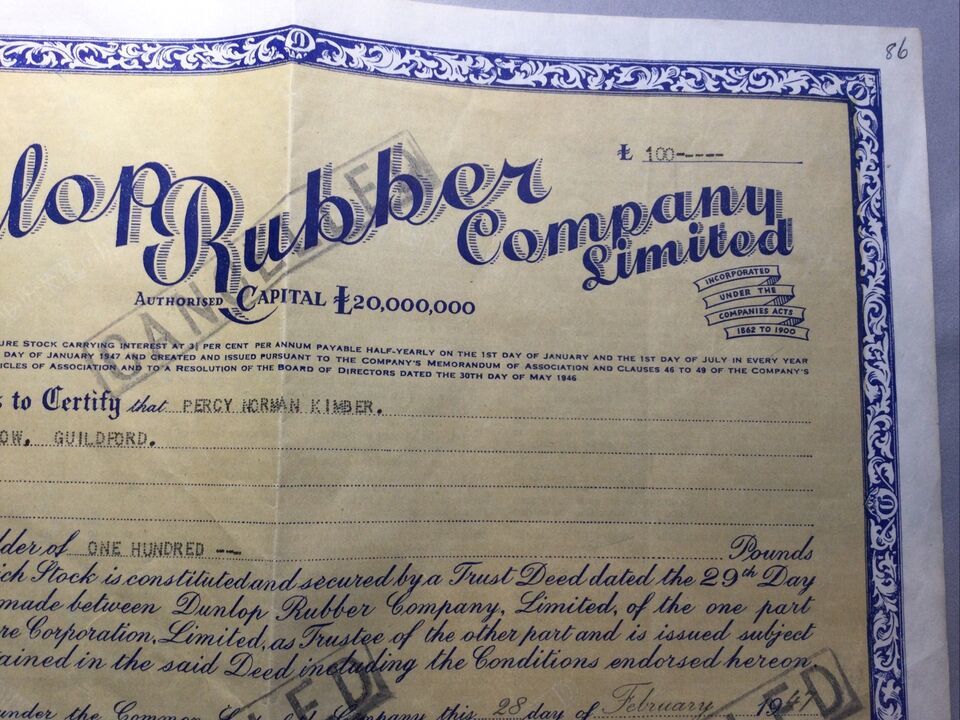 86
£ 100-----
lop Rubber
Company
Limited
CANCELLED
AUTHORISED CAPITAL £20,000,000
INCORPORATED
UNDER THE
COMPANIES ACTS
1862 TO 1900
URE STOCK CARRYING INTEREST AT 3½ PER CENT PER ANNUM PAYABLE HALF-YEARLY ON THE 1ST DAY OF JANUARY AND THE 1ST DAY OF JULY IN EVERY YEAR
DAY OF JANUARY 1947 AND CREATED AND ISSUED PURSUANT TO THE COMPANY'S MEMORANDUM OF ASSOCIATION AND CLAUSES 46 TO 49 OF THE COMPANY'S
ICLES OF ASSOCIATION AND TO A RESOLUTION OF THE BOARD OF DIRECTORS DATED THE 30TH DAY OF MAY 1946
s to Certify that PERCY NORMAN KIMBER.
OW. GUILDFORD.
lder of ONE HUNDRED -- Pounds
ich Stock is constituted and secured by a Trust Deed dated the 29th Day
made between Dunlop Rubber Company, Limited, of the one part
re Corporation, Limited, as Trustee of the other part and is issued subject
tained in the said Deed including the Conditions endorsed hereon.
LLED
LED
under the Common Company this 28 day of February 1947